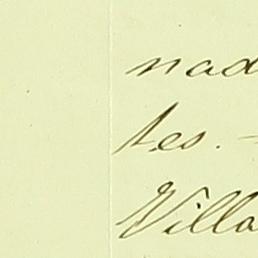 nad
tes. -
Villa